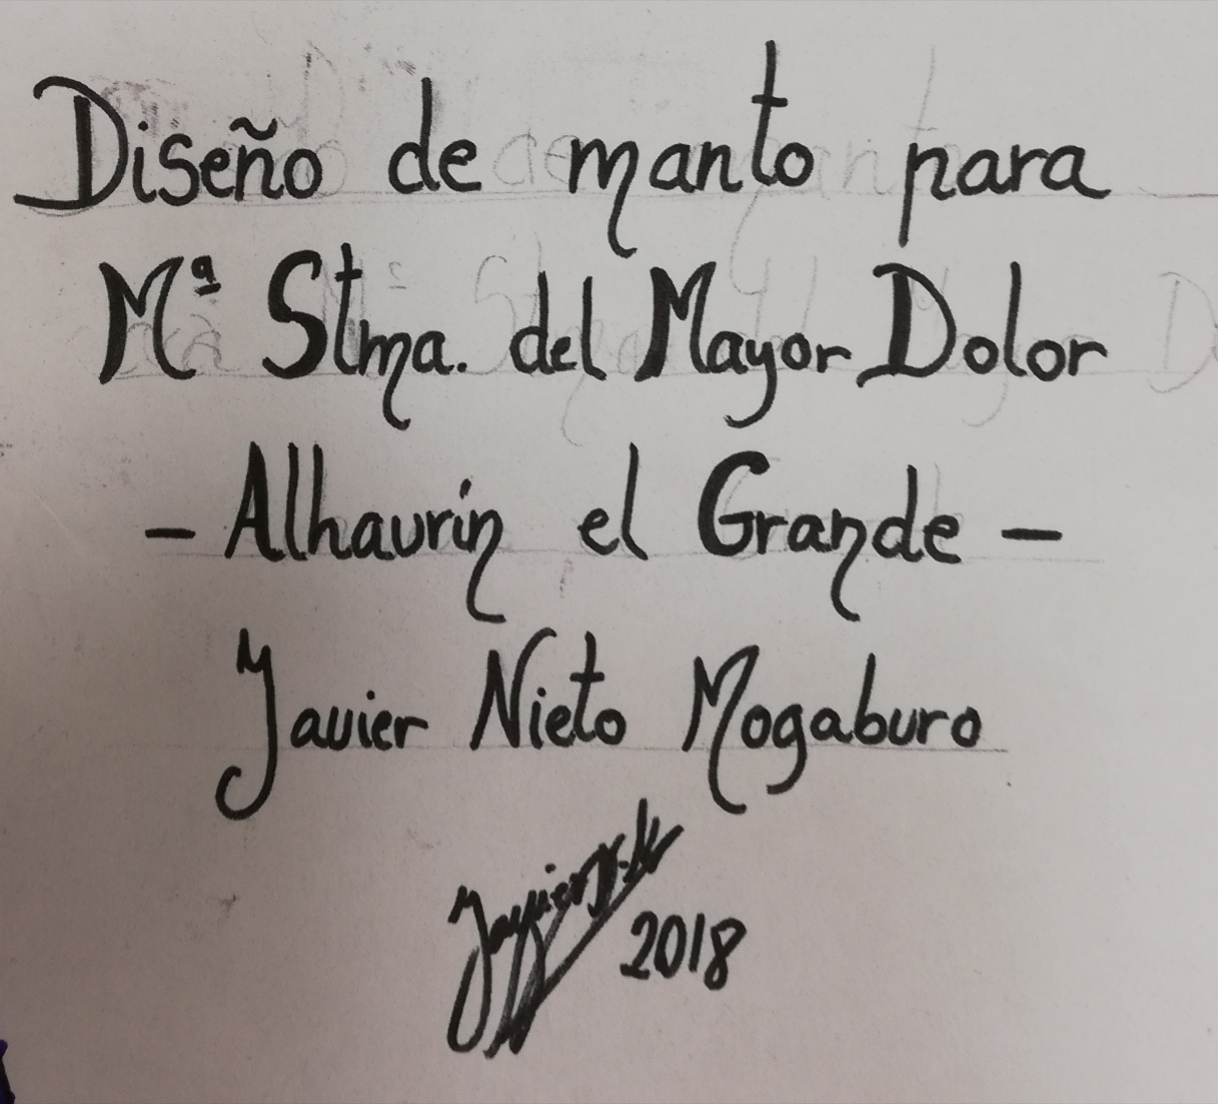 Diseño de manto para
Mª Stma. del Mayor Dolor
- Alhaurin el Grande -
Javier Nieto Mogaburo
2018